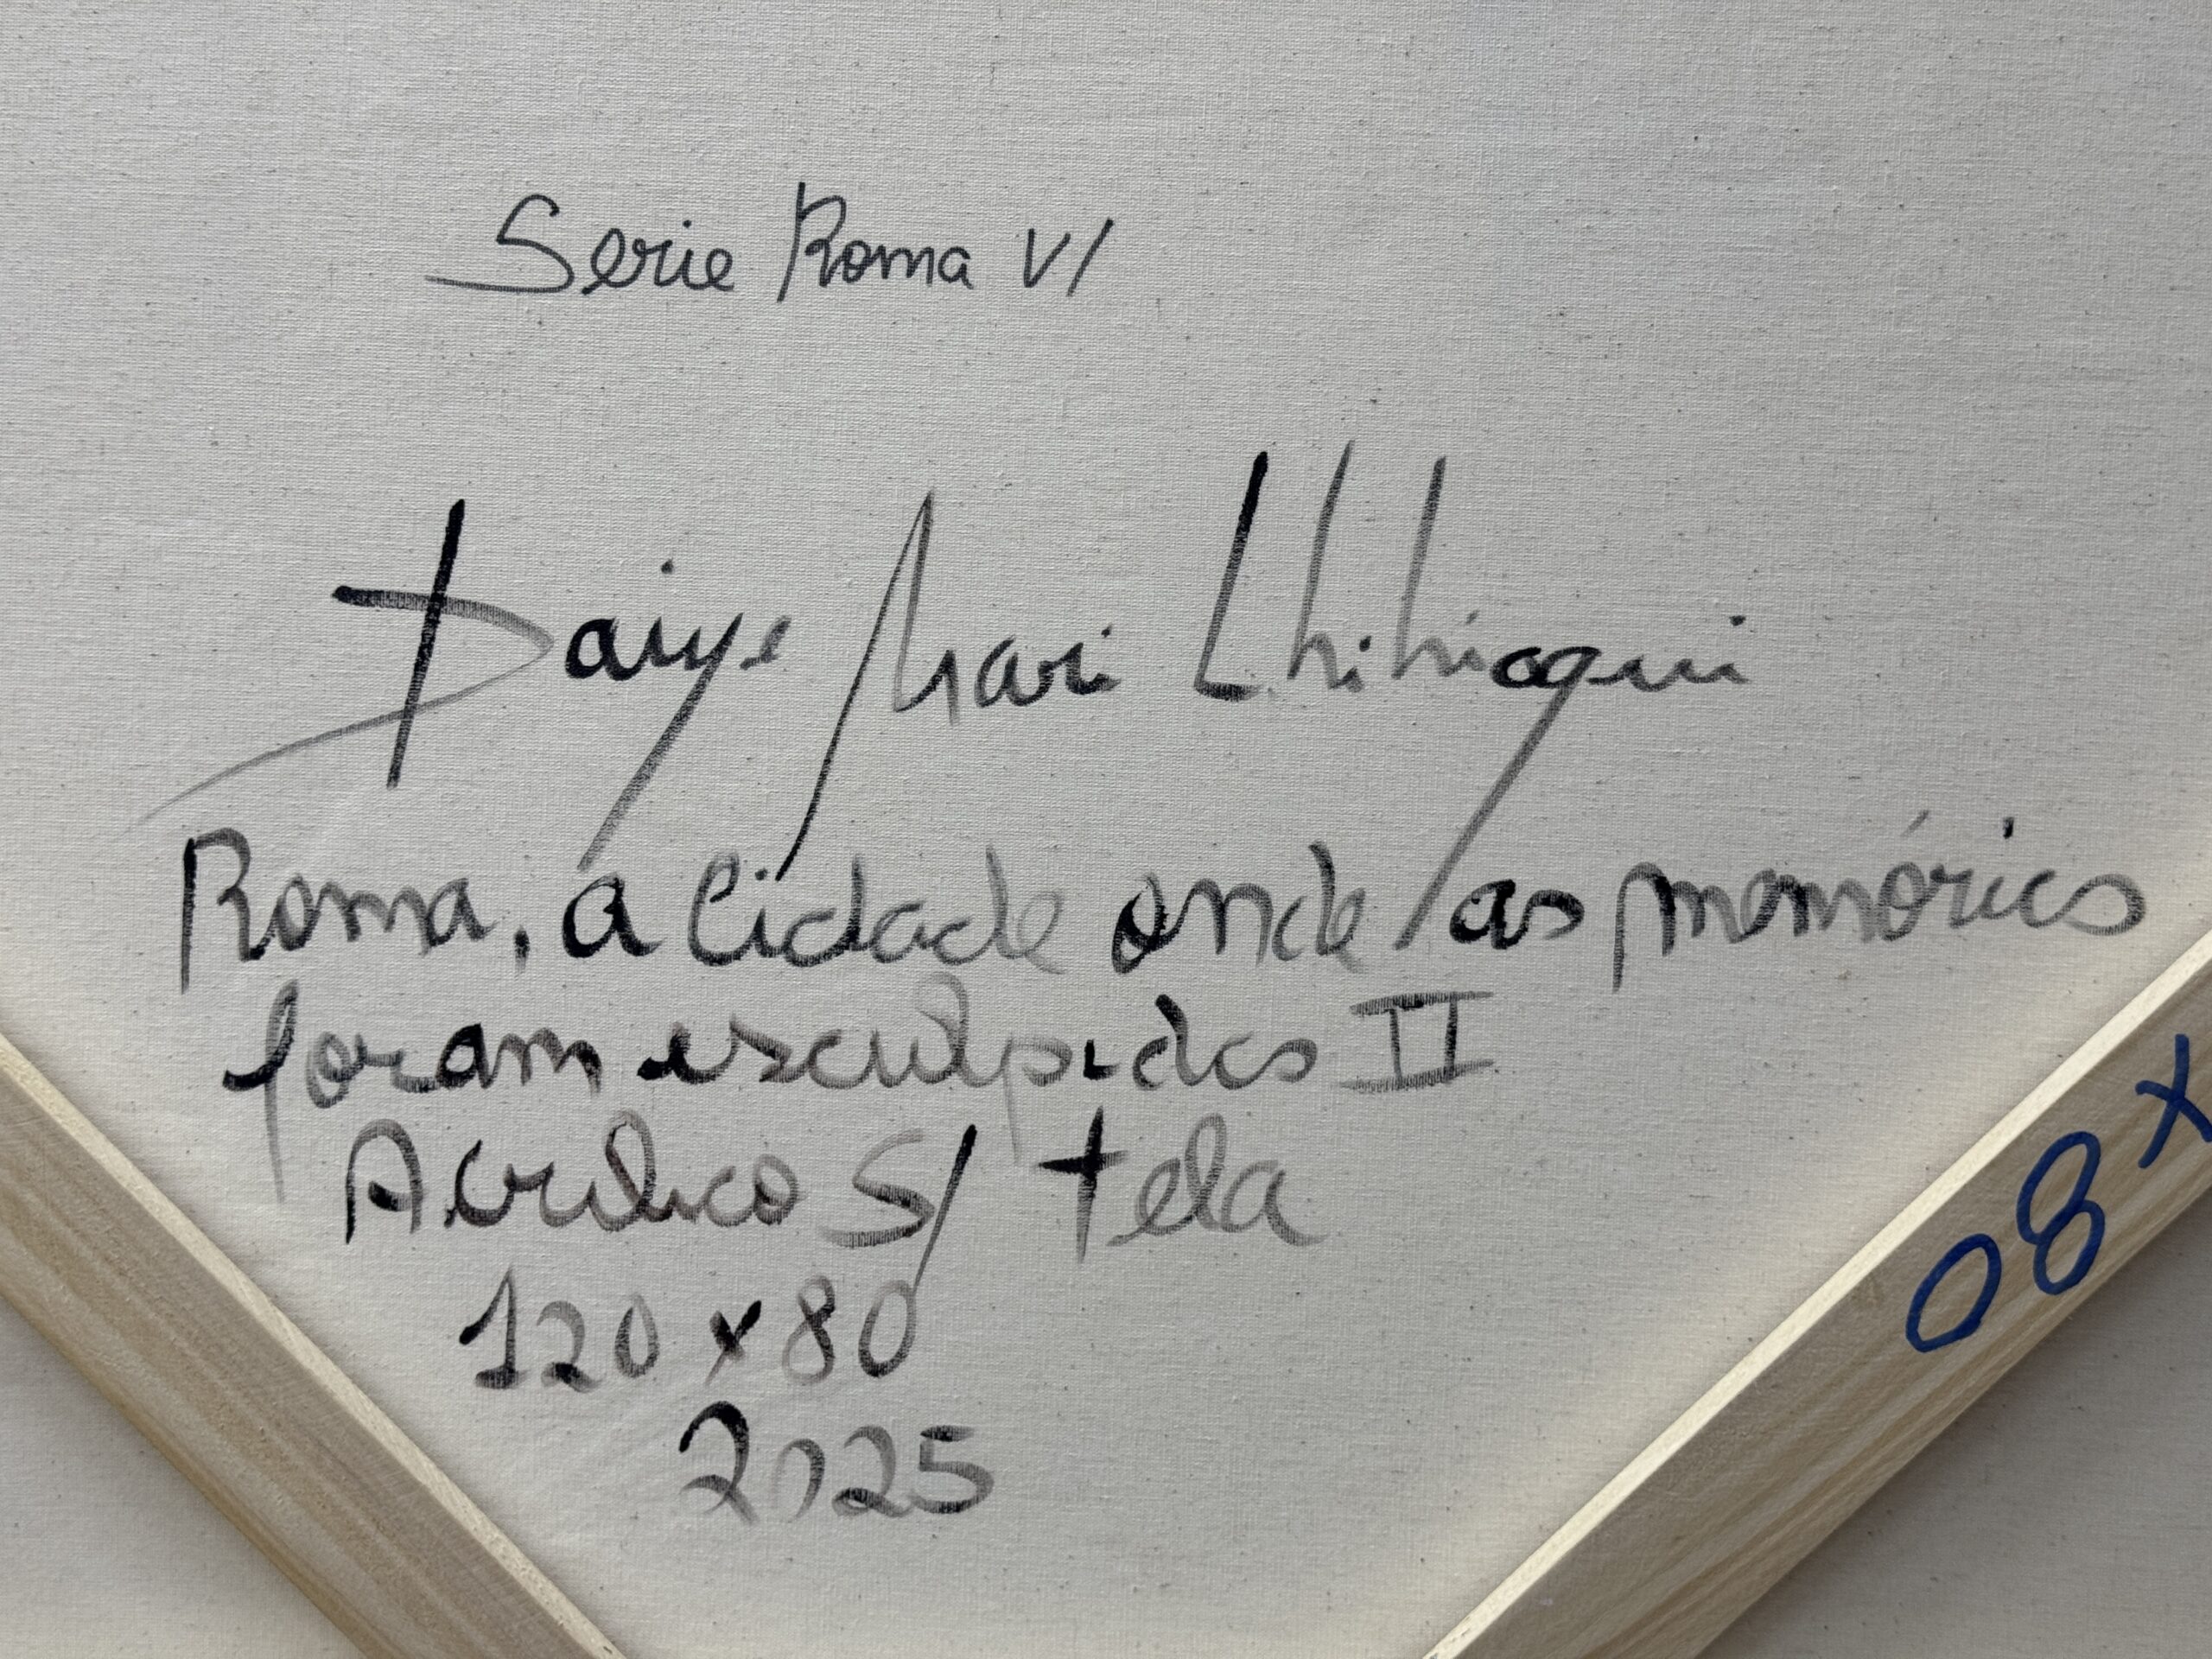 Serie Roma VI
Mari
Roma, a cidade onde as memórias
foram esculpidas II
Acrílico S/ tela
120 x 80
2025
80 x